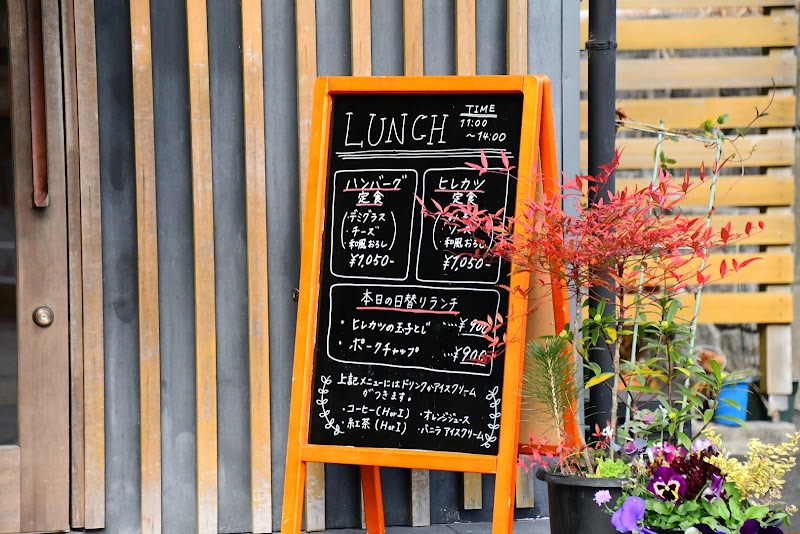 LUNCH
TIME
11:00
~14:00
ハンバーグ
定食
(デミグラス
・チーズ
・和風おろし)
¥1,050-
ヒレカツ
定食
・和風おろし
¥1,050-
本日の日替りランチ
・ヒレカツの玉子とじ …¥900
・ポークチャップ …¥900
上記メニューにはドリンクかアイスクリーム
がつきます。
・コーヒー(HorI) ・オレンジジュース
・紅茶(HorI) ・バニラアイスクリーム